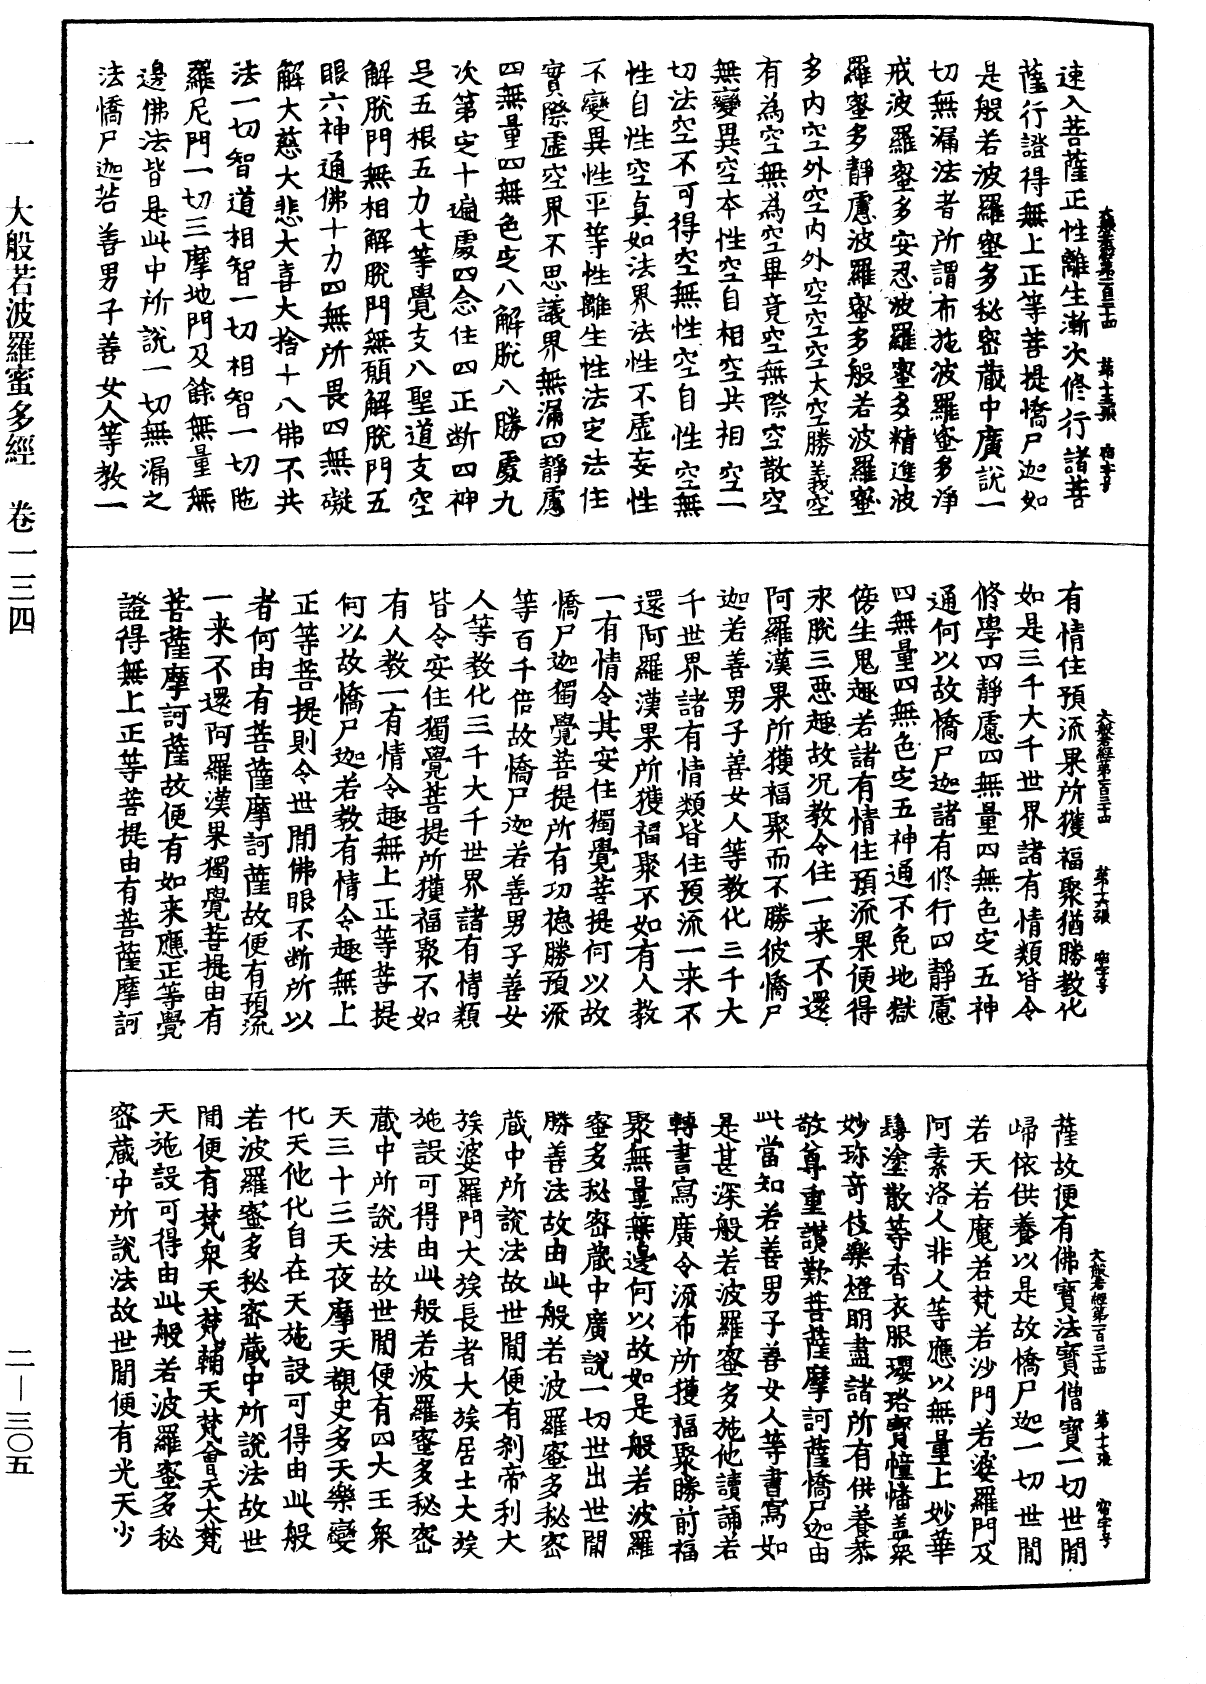 大般若經第一百三十四　第十五張　宿字号
速入菩薩正性離生漸次修行諸菩
薩行證得無上正等菩提憍尸迦如
是般若波羅蜜多秘密藏中廣說一
切無漏法者所謂布施波羅蜜多淨
戒波羅蜜多安忍波羅蜜多精進波
羅蜜多靜慮波羅蜜多般若波羅蜜
多內空外空內外空空空大空勝義空
有為空無為空畢竟空無際空散空
無變異空本性空自相空共相空一
切法空不可得空無性空自性空無
性自性空真如法界法性不虛妄性
不變異性平等性離生性法定法住
實際虛空界不思議界無漏四靜慮
四無量四無色定八解脫八勝處九
次第定十遍處四念住四正斷四神
足五根五力七等覺支八聖道支空
解脫門無相解脫門無願解脫門五
眼六神通佛十力四無所畏四無礙
解大慈大悲大喜大捨十八佛不共
法一切智道相智一切相智一切陁
羅尼門一切三摩地門及餘無量無
邊佛法皆是此中所說一切無漏之
法憍尸迦若善男子善女人等教一
大般若經第一百三十四　第十六張　宿字号
有情住預流果所獲福聚猶勝教化
如是三千大千世界諸有情類皆令
修學四靜慮四無量四無色定五神
通何以故憍尸迦諸有修行四靜慮
四無量四無色定五神通不免地獄
傍生鬼趣若諸有情住預流果便得
永脫三惡趣故況教令住一来不還
阿羅漢果所獲福聚而不勝彼憍尸
迦若善男子善女人等教化三千大
千世界諸有情類皆住預流一来不
還阿羅漢果所獲福聚不如有人教
一有情令其安住獨覺菩提何以故
憍尸迦獨覺菩提所有功德勝預流
等百千倍故憍尸迦若善男子善女
人等教化三千大千世界諸有情類
皆令安住獨覺菩提所獲福聚不如
有人教一有情令趣無上正等菩提
何以故憍尸迦若教有情令趣無上
正等菩提則令世間佛眼不斷所以
者何由有菩薩摩訶薩故便有預流
一来不還阿羅漢果獨覺菩提由有
菩薩摩訶薩故便有如来應正等覺
證得無上正等菩提由有菩薩摩訶
大般若經第一百三十四　第十七張　宿字号
薩故便有佛寶法寶僧寶一切世間
歸依供養以是故憍尸迦一切世間
若天若魔若梵若沙門若婆羅門及
阿素洛人非人等應以無量上妙華
鬘塗散等香衣服瓔珞寶幢幡蓋眾
妙珎奇伎樂燈明盡諸所有供養恭
敬尊重讚歎菩薩摩訶薩憍尸迦由
此當知若善男子善女人等書寫如
是甚深般若波羅蜜多施他讀誦若
轉書寫廣令流布所獲福聚勝前福
聚無量無邊何以故如是般若波羅
蜜多秘密藏中廣說一切世出世間
勝善法故由此般若波羅蜜多秘密
藏中所說法故世間便有剎帝利大
族婆羅門大族長者大族居士大族
施設可得由此般若波羅蜜多秘密
藏中所說法故世間便有四大王眾
天三十三天夜摩天覩史多天樂變
化天他化自在天施設可得由此般
若波羅蜜多秘密藏中所說法故世
間便有梵眾天梵輔天梵會天大梵
天施設可得由此般若波羅蜜多秘
密藏中所說法故世間便有光天少
一　大般若波羅蜜多經　卷一三四
二—三〇五